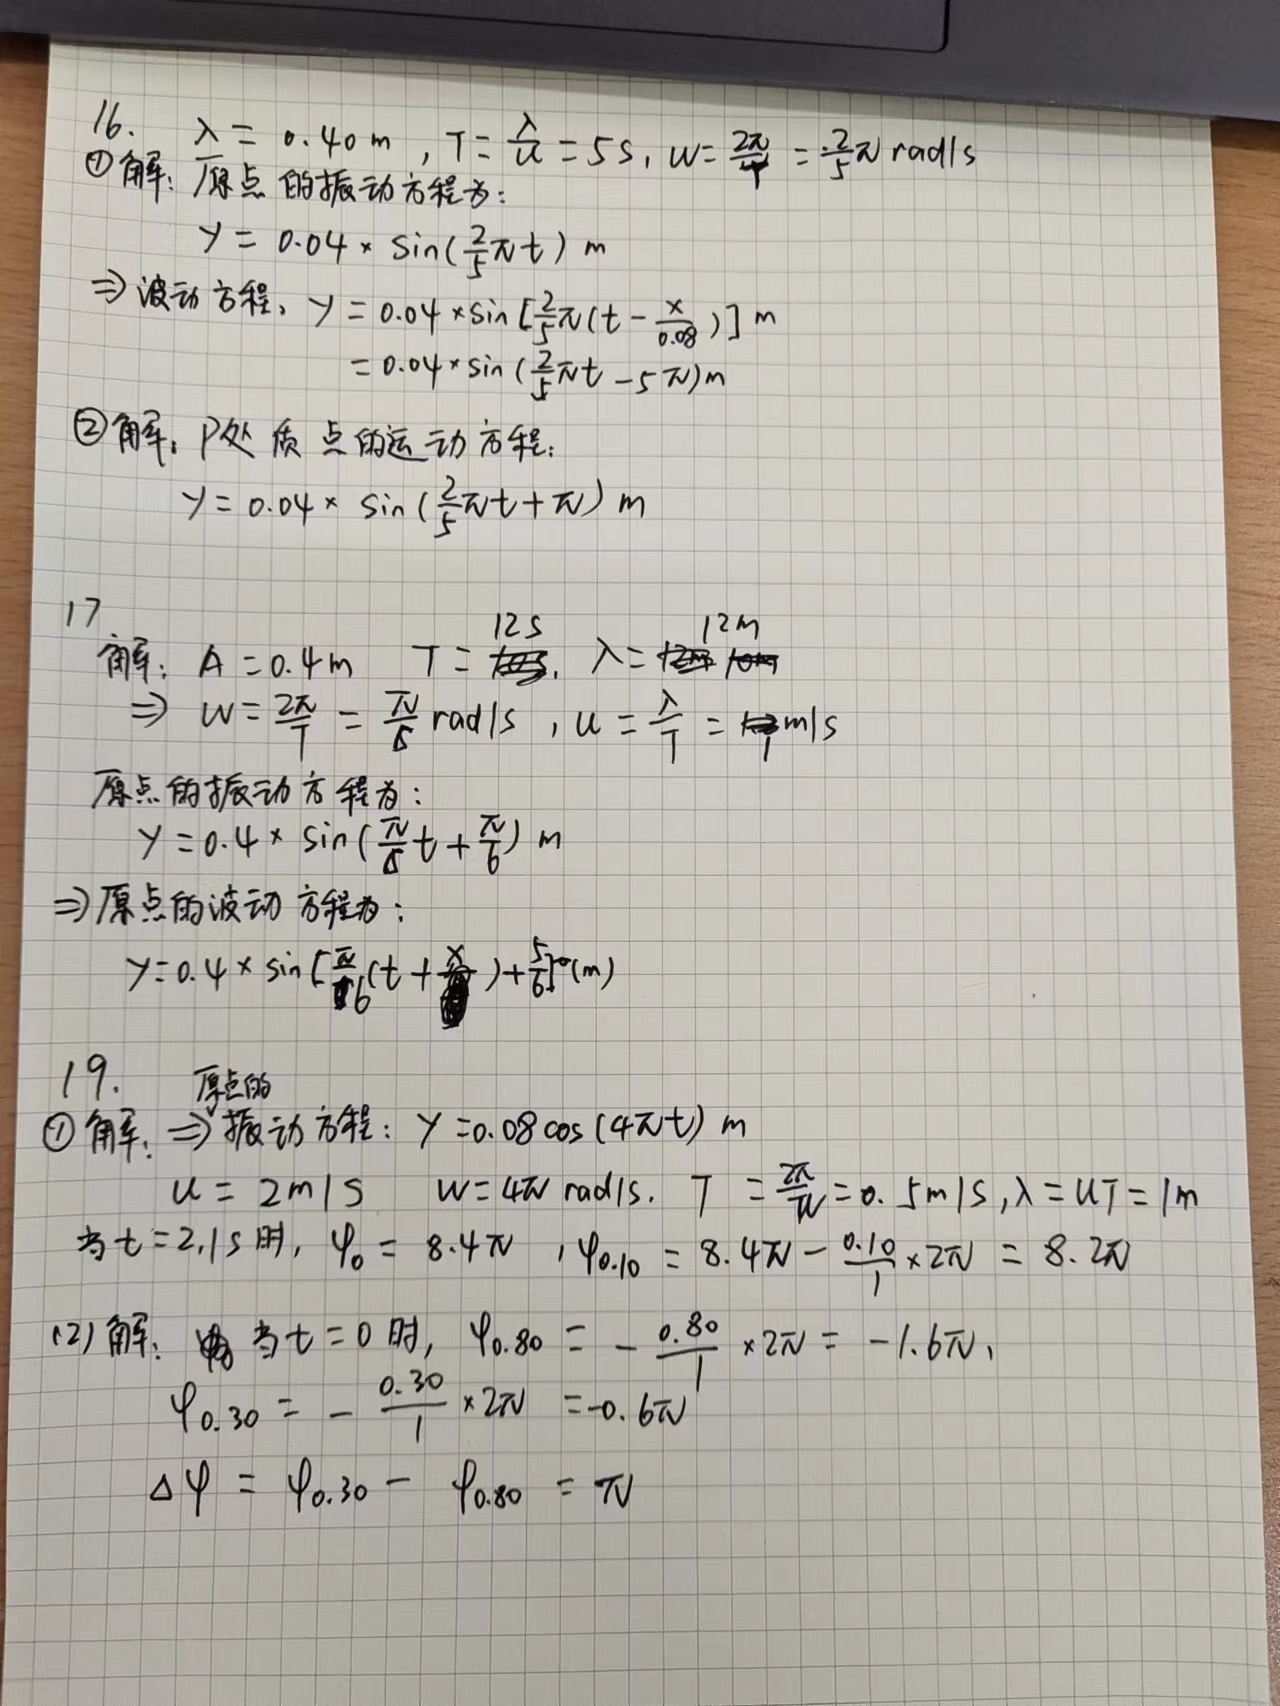 16. λ = 0.40 m , T = λ/u = 5 s , W = 2π/T = 2/5 π rad/s
① 解: 原点的振动方程为:
y = 0.04 × sin(2/5 πt) m
⇒ 波动方程, y = 0.04 × sin [2/5 π(t - x/0.08)] m
= 0.04 × sin (2/5 πt - 5π) m
② 解: P处质点的运动方程:
y = 0.04 × sin (2/5 πt + π) m
17
解: A = 0.4 m T = 12s λ = 12m
⇒ W = 2π/T = π/6 rad/s , u = λ/T = 1 m/s
原点的振动方程为:
y = 0.4 × sin (π/6 t + π/6) m
⇒ 原点的波动方程为:
y = 0.4 × sin [π/6 (t + x) + 5/6] (m)
19. 原点的
① 解: ⇒ 振动方程: y = 0.08 cos (4πt) m
u = 2 m/s W = 4π rad/s. T = 2π/W = 0.5 m/s , λ = uT = 1m
当 t = 2.1s 时, φ0 = 8.4π , φ0.10 = 8.4π - 0.10/1 × 2π = 8.2π
(2) 解: 当 t = 0 时, φ0.80 = - 0.80/1 × 2π = -1.6π,
φ0.30 = - 0.30/1 × 2π = -0.6π
Δφ = φ0.30 - φ0.80 = π